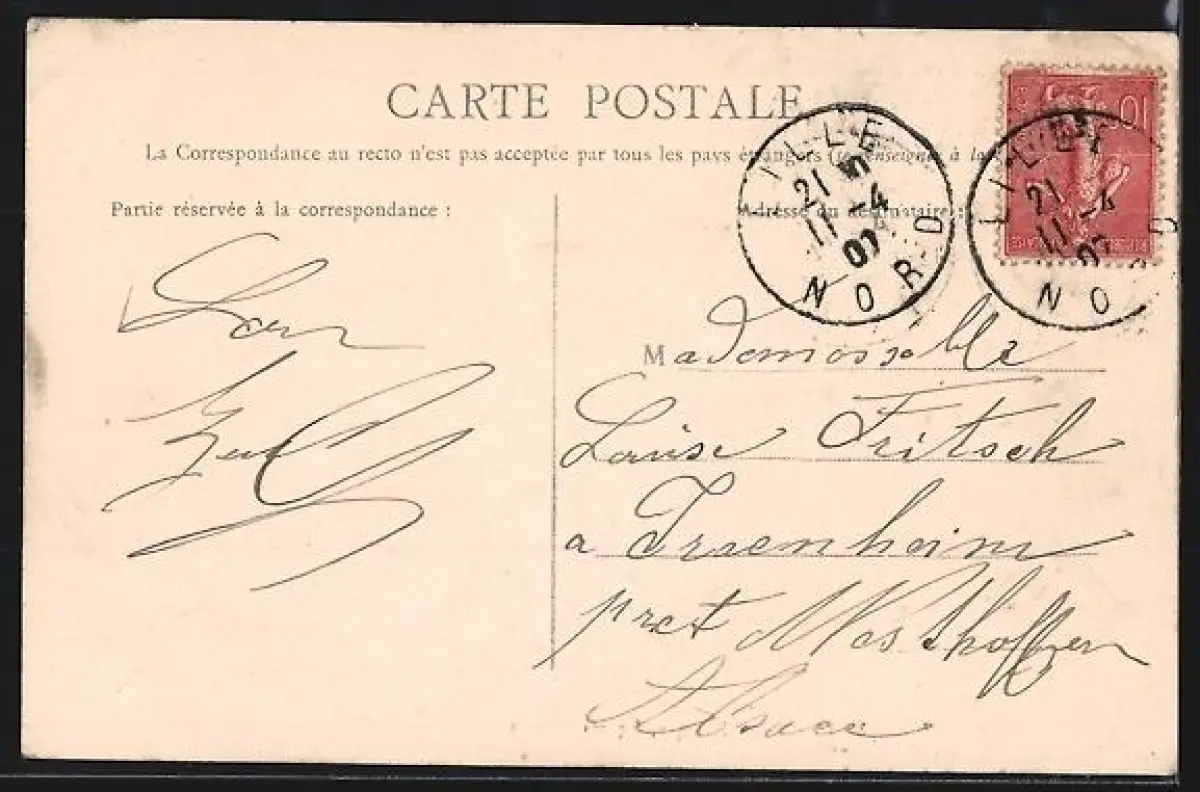 CARTE POSTALE
La Correspondance au recto n'est pas acceptée par tous les pays étrangers (se renseigner à la
Partie réservée à la correspondance :
Adresse du destinataire :
LILLE
21
11 -4
07
NORD
LILLE
21
11 -4
07
NORD
10
Mademoiselle
Louise Fritsch
a Traenheim
pret Westhoffen
Alsace